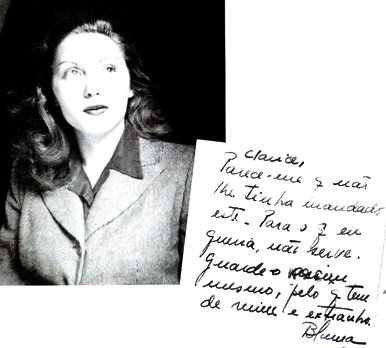 Clarice,
Parece-me q não
lhe tinha mandado
este. Para o q eu
queria, não serve.
Guarde-o
mesmo, pelo q tem
de ruim e extranho.
Bluma